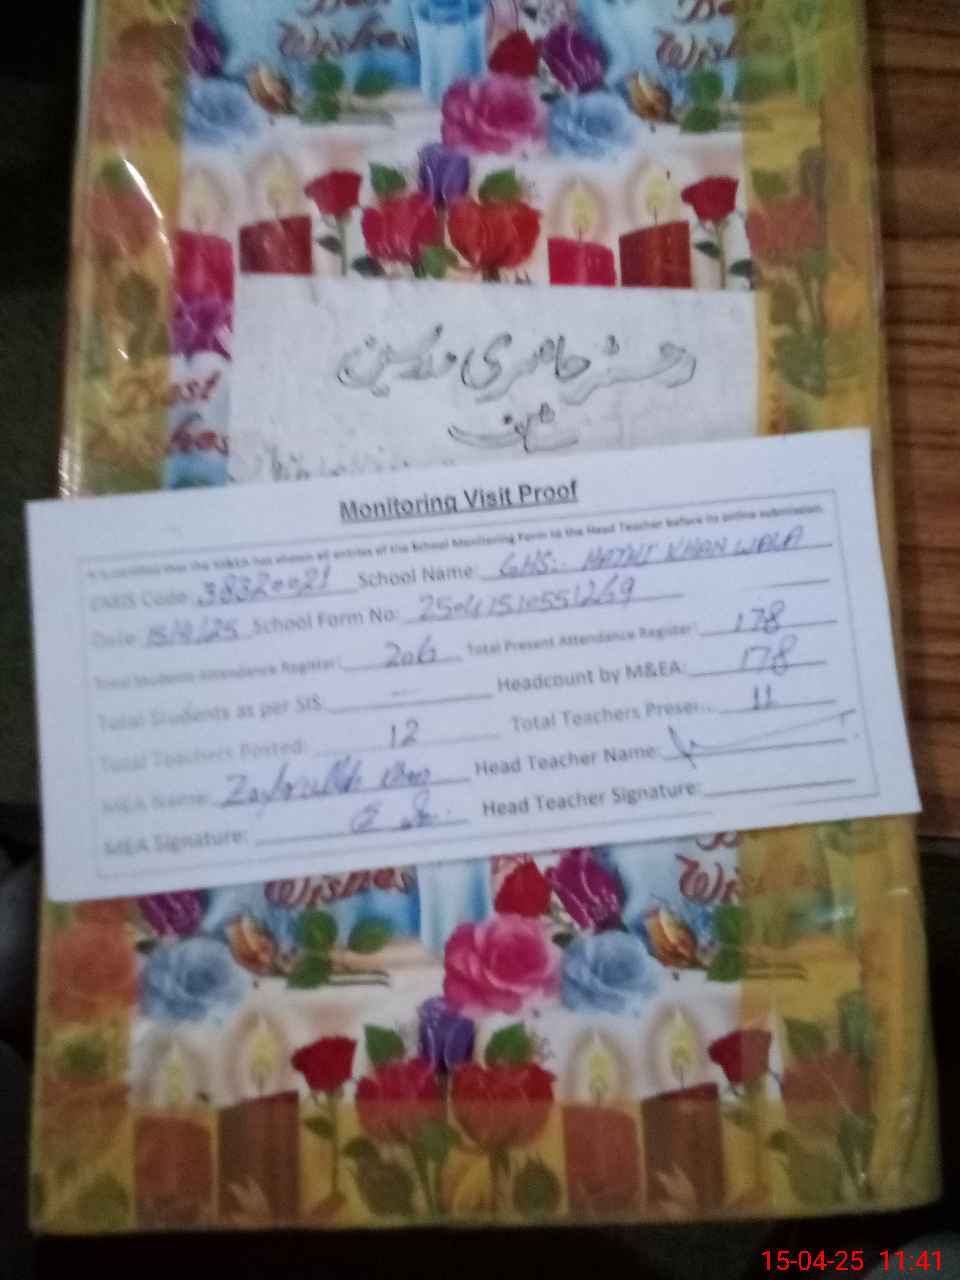 Best
Wishes
Wishes
دفتر حاضری مدرسین
سٹاف
Best
hes
Monitoring Visit Proof
It is certified that the M&EA has shown all entries of the School Monitoring Form to the Head Teacher before its online submission.
EMIS Code: 38320021 School Name: GHS:. HATHI KHAN WALA
Date: 15/4/25 School Form No: 25041510551269
Total Students Attendance Register: 206 Total Present Attendance Register: 178
Total Students as per SIS: Headcount by M&EA: 178
Total Teachers Posted: 12 Total Teachers Present: 11
MEA Name: Khan Head Teacher Name:
MEA Signature: Head Teacher Signature:
Wishes
Wishes
15-04-25 11:41